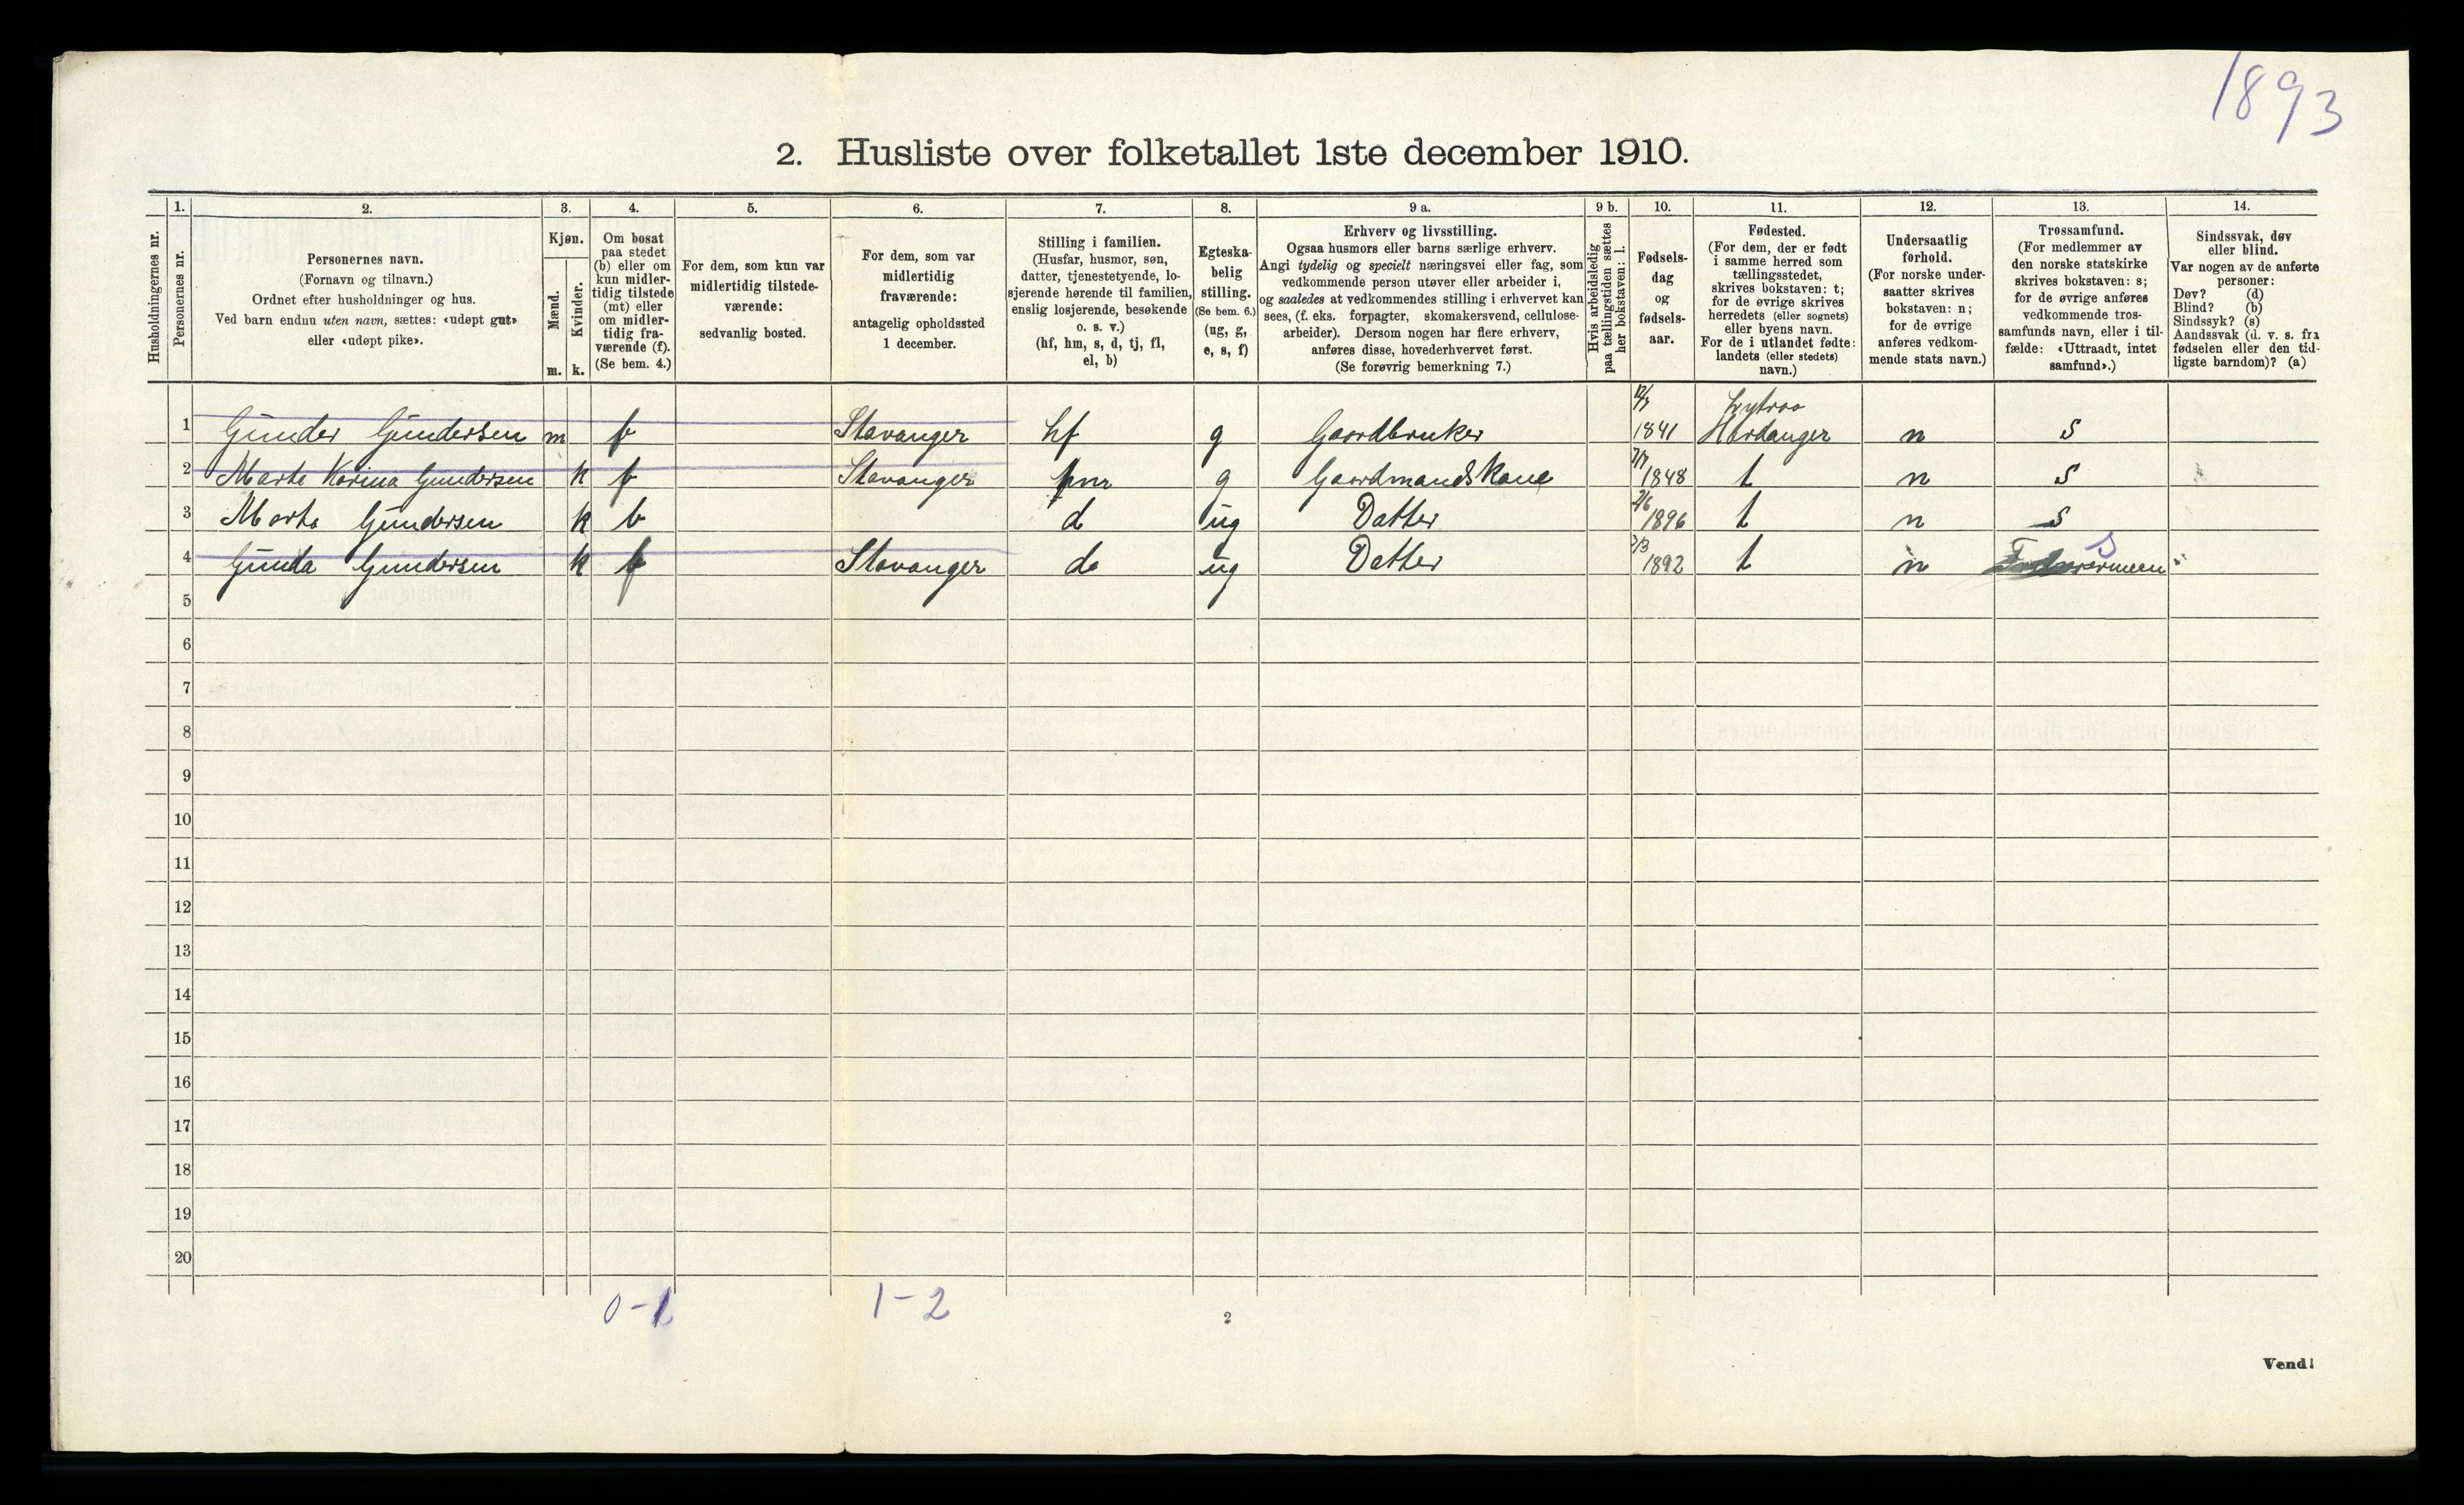 1893
2. Husliste over folketallet 1ste december 1910.
Husholdningernes nr.
1.
Personernes nr.
2.
Personernes navn.
(Fornavn og tilnavn.)
Ordnet efter husholdninger og hus.
Ved barn endnu uten navn, sættes: «udøpt gut»
eller «udøpt pike».
3.
Kjøn.
Mænd.
Kvinder.
m. k.
4.
Om bosat
paa stedet
(b) eller om
kun midler-
tidig tilstede
(mt) eller
om midler-
tidig fra-
værende (f).
(Se bem. 4.)
5.
For dem, som kun var
midlertidig tilstede-
værende:
sedvanlig bosted.
6.
For dem, som var
midlertidig
fraværende:
antagelig opholdssted
1 december.
7.
Stilling i familien.
(Husfar, husmor, søn,
datter, tjenestetyende, lo-
sjerende hørende til familien,
enslig losjerende, besøkende
o. s. v.)
(hf, hm, s, d, tj, fl,
el, b)
8.
Egteska-
belig
stilling.
(Se bem. 6.)
(ug, g,
e, s, f)
9 a.
Erhverv og livsstilling.
Ogsaa husmors eller barns særlige erhverv.
Angi tydelig og specielt næringsvei eller fag, som
vedkommende person utøver eller arbeider i,
og saaledes at vedkommendes stilling i erhvervet kan
sees, (f. eks. forpagter, skomakersvend, cellulose-
arbeider). Dersom nogen har flere erhverv,
anføres disse, hovederhvervet først.
(Se forøvrig bemerkning 7.)
9 b.
Hvis arbeidsledig
paa tællingstiden sættes
her bokstaven: l.
10.
Fødsels-
dag
og
fødsels-
aar.
11.
Fødested.
(For dem, der er født
i samme herred som
tællingsstedet,
skrives bokstaven: t;
for de øvrige skrives
herredets (eller sognets)
eller byens navn.
For de i utlandet fødte:
landets (eller stedets)
navn.)
12.
Undersaatlig
forhold.
(For norske under-
saatter skrives
bokstaven: n;
for de øvrige
anføres vedkom-
mende stats navn.)
13.
Trossamfund.
(For medlemmer av
den norske statskirke
skrives bokstaven: s;
for de øvrige anføres
vedkommende tros-
samfunds navn, eller i til-
fælde: «Uttraadt, intet
samfund».)
14.
Sindssvak, døv
eller blind.
Var nogen av de anførte
personer:
Døv? (d)
Blind? (b)
Sindssyk? (s)
Aandssvak (d. v. s. fra
fødselen eller den tid-
ligste barndom)? (a)
1 Gunder Gundersen m f Stavanger hf g Gaardbruker 1841 Hardanger n s
2 Marta Karina Gundersen k f Stavanger hm g Gaardmandskone 1848 t n s
3 Marta Gundersen k b d ug Datter 2/6 1896 t n s
4 Gunda Gundersen k f Stavanger d ug Datter 2/3 1892 t n s
5
6
7
8
9
10
11
12
13
14
15
16
17
18
19
20
0-1 1-2
2
Vend!